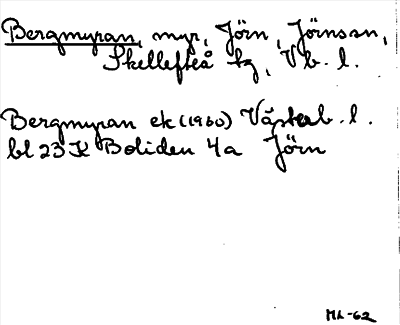 Bergmyran, myr, Jörn, Jörns sn,
Skellefteå tg, Vb. l.
Bergmyran ek (1960) Västerb. l.
bl 23 K Boliden 4a Jörn
ML-62